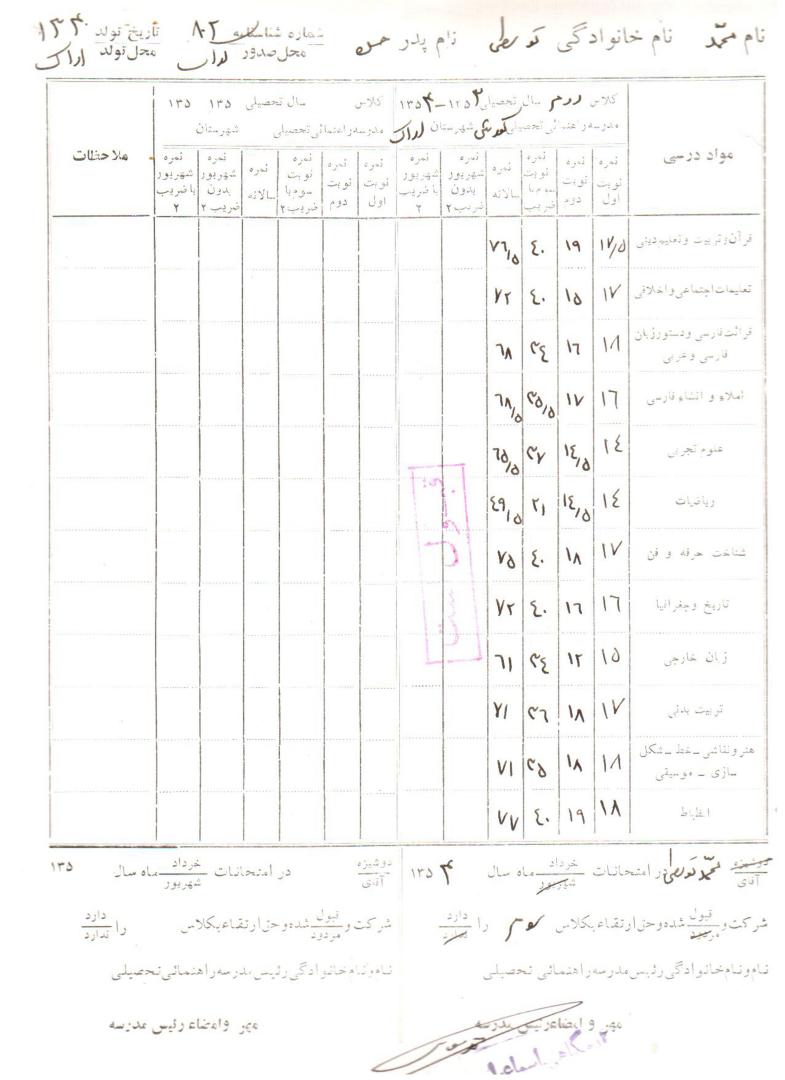 نام محمد نام خانوادگی توسطی نام پدر حسن شماره شناسنامه ۸۲ تاریخ تولد ۱۳۴۰
محل صدور اراک محل تولد اراک
مواد درسی
کلاس دوم سال تحصیلی ۱۲۵۳-۱۳۵۴
مدرسه راهنمائی تحصیلی شهرستان اراک
نمره نوبت اول
نمره نوبت دوم
نمره نوبت سوم با ضریب ۲
نمره سالانه
نمره شهریور بدون ضریب ۲
نمره شهریور با ضریب ۲
کلاس سال تحصیلی ۱۳۵ ۱۳۵
مدرسه راهنمائی تحصیلی شهرستان
نمره نوبت اول
نمره نوبت دوم
نمره نوبت سوم با ضریب ۲
نمره سالانه
نمره شهریور بدون ضریب ۲
نمره شهریور با ضریب ۲
ملاحظات
قرآن و تربیت و تعلیم دینی ۱۷/۵ ۱۹ ٤۰ ۷٦/۵
تعلیمات اجتماعی و اخلاقی ۱۷ ۱۵ ٤۰ ۷۲
قرائت فارسی و دستور زبان ۱۸ ۱٦ ۳٤ ٦۸
فارسی و عربی
املاء و انشاء فارسی ۱٦ ۱۷ ۳۵/۵ ٦۸/۵
علوم تجربی ۱٤ ۱٤/۵ ۳۷ ٦۵/۵
ریاضیات ۱٤ ۱٤/۵ ۲۱ ٤۹/۵
شناخت حرفه و فن ۱۷ ۱۸ ٤۰ ۷۵
تاریخ و جغرافیا ۱٦ ۱٦ ٤۰ ۷۲
زبان خارجی ۱۵ ۱۲ ۳٤ ٦۱
تربیت بدنی ۱۷ ۱۸ ۳٦ ۷۱
هنر و نقاشی - خط - شکل ۱۸ ۱۸ ۳۵ ۷۱
سازی - موسیقی
انظباط ۱۸ ۱۹ ٤۰ ۷۷
قبول است
دوشیزه
آقای محمد توسطی در امتحانات خرداد شهریور ماه سال ۱۳۵۴
شرکت و قبول مردود شده و حق ارتقاء بکلاس سوم را دارد ندارد
نام و نام خانوادگی رئیس مدرسه راهنمائی تحصیلی
مهر و امضاء رئیس مدرسه
دوشیزه
آقای در امتحانات خرداد شهریور ماه سال ۱۳۵
شرکت و قبول مردود شده و حق ارتقاء بکلاس را دارد ندارد
نام و نام خانوادگی رئیس مدرسه راهنمائی تحصیلی
مهر و امضاء رئیس مدرسه